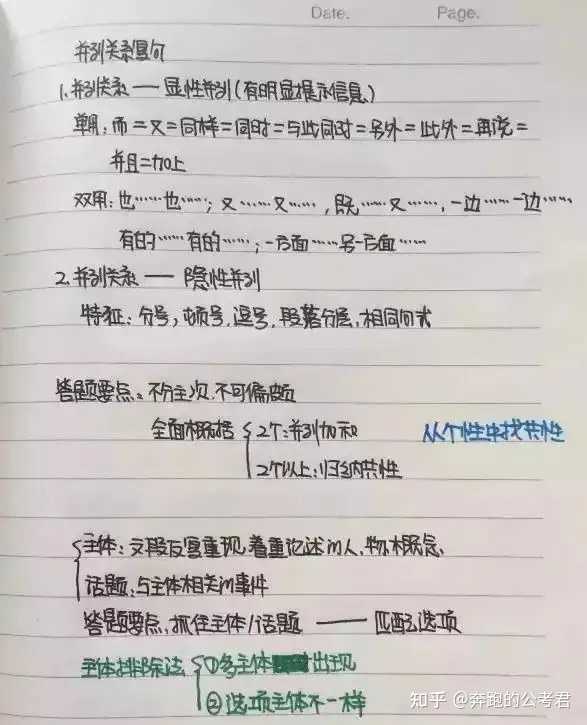 Date.    Page.
并列关系复句
1.并列关系 —— 显性并列(有明显提示信息)
单用:而=又=同样=同时=与此同时=另外=此外=再说=
并且=加上
双用:也……也……;又……又……,既……又……,一边……一边……
有的……有的……;一方面……另一方面……
2.并列关系 —— 隐性并列
特征:分号,顿号,逗号,段落分层,相同句式
答题要点:不分主次,不可偏颇
全面概括 { 2个:并列加和    从个性中找共性
2个以上:归纳共性
{ 主体:文段反复重现,着重论述的人、物、概念、
话题:与主体相关的事件
答题要点:抓住主体/话题 —— 匹配选项
主体排除法 { ①多主体出现
②选项主体不一样
知乎 @奔跑的公考君